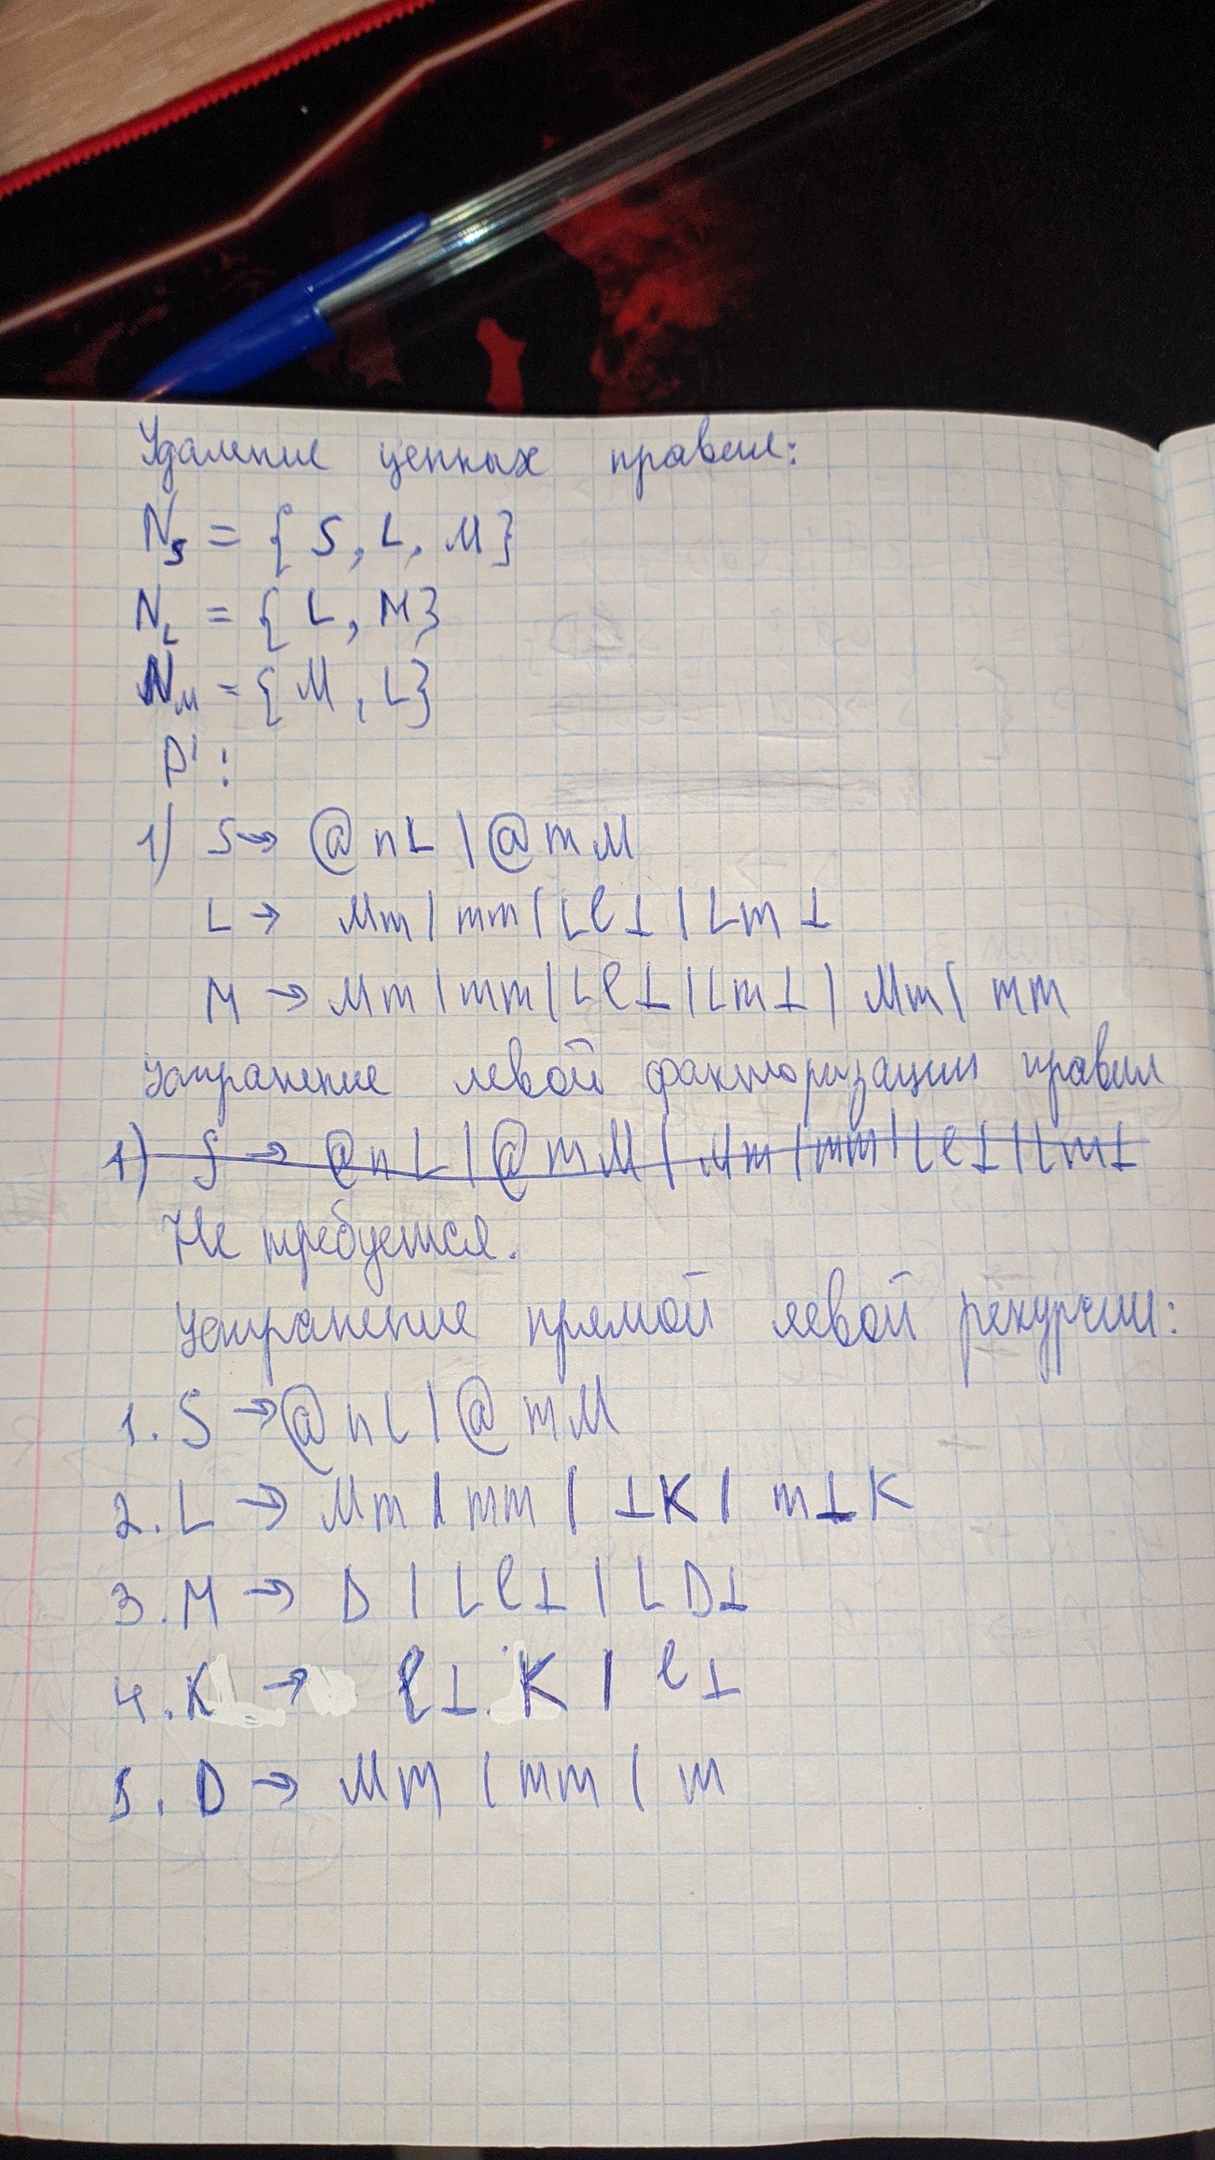 Удаление цепных правил:
N_S = { S, L, M }
N_L = { L, M }
N_M = { M, L }
P' :
1) S → @nL | @mM
L → Mm | mm | Lℓ⊥ | Lm⊥
M → Mm | mm | Lℓ⊥ | Lm⊥ | Mm | mm
Устранение левой факторизации правил
1) S → @nL | @mM | Mm | mm | Lℓ⊥ | Lm⊥
Не требуется.
Устранение прямой левой рекурсии:
1. S → @nL | @mM
2. L → Mm | mm | ⊥K | m⊥K
3. M → D | Lℓ⊥ | LD⊥
4. K → ℓ⊥K | ℓ⊥
5. D → Mm | mm | m